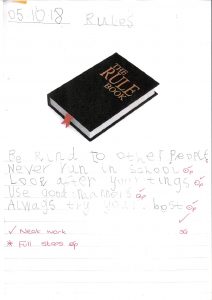 05 10 18 Rules
THE
RULE
BOOK
Be kind to other people
Never run in school
Look after your tings
Use good manners
Always try your best
✓ Neat work
* Full stops